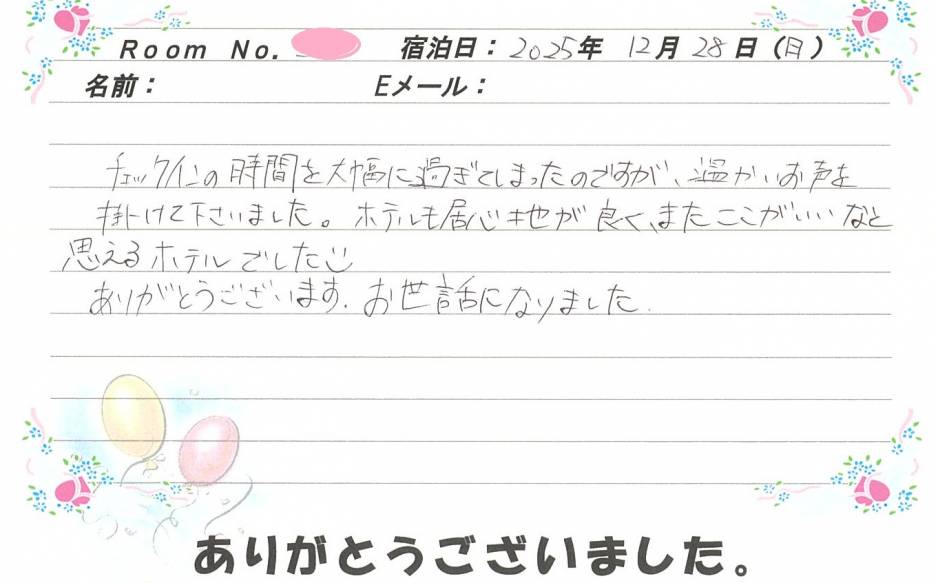 Room No. 宿泊日：2025年 12月 28日（日）
名前： Eメール：
チェックインの時間を大幅に過ぎてしまったのですが、温かいお声を
掛けて下さいました。ホテルも居心地が良く、またここがいいなと
思えるホテルでした
ありがとうございます。お世話になりました.
ありがとうございました。